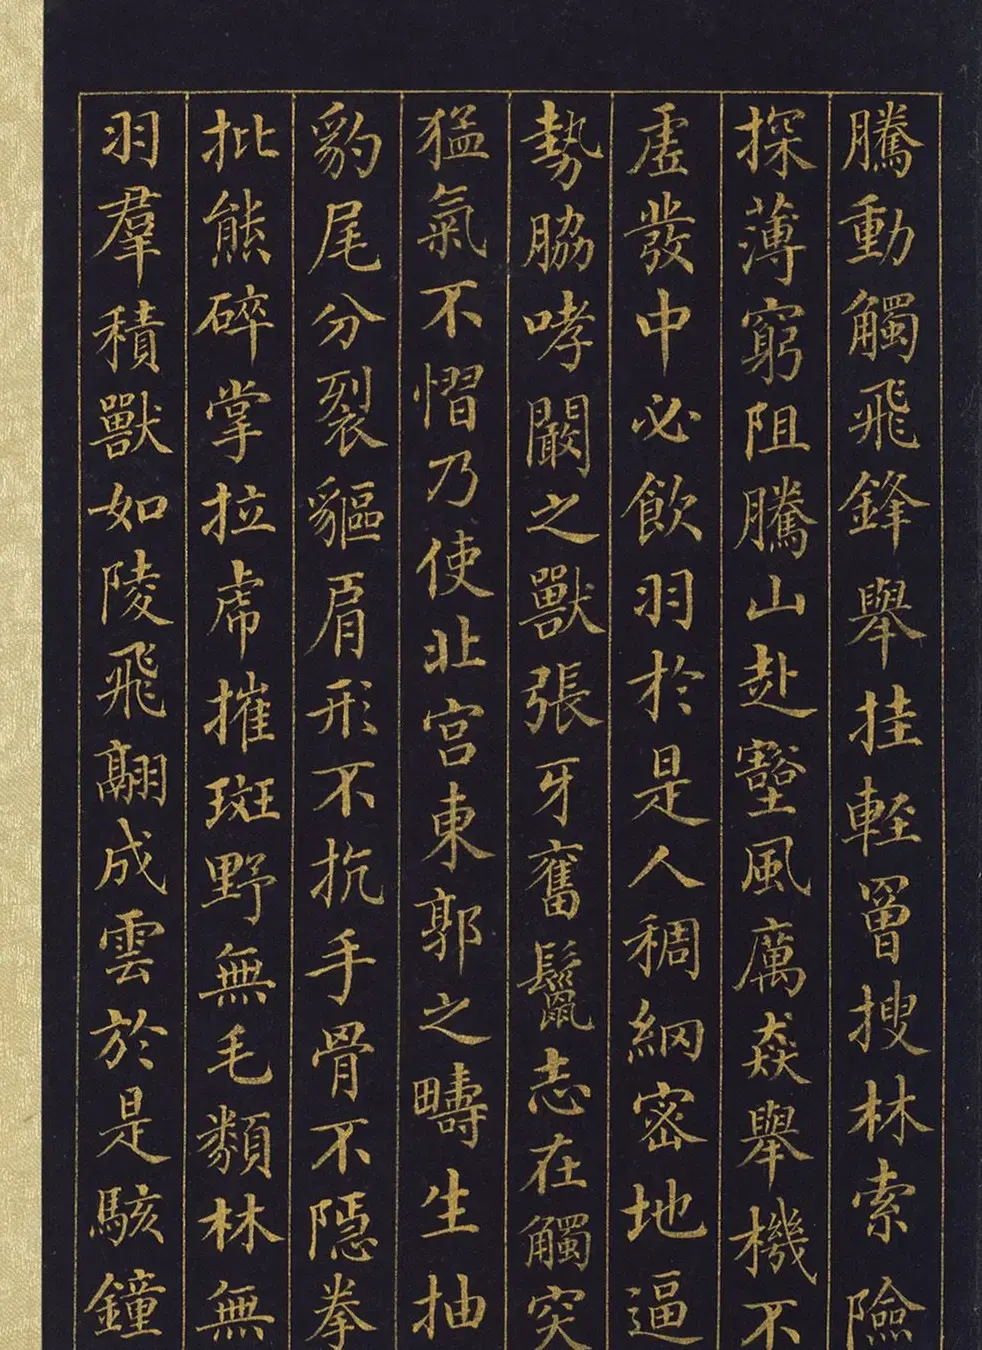 騰動觸飛鋒舉挂輕罾搜林索險
探薄窮阻騰山赴壑風厲猋舉機不
虛發中必飲羽於是人稠網密地逼
勢脇哮闞之獸張牙奮鬣志在觸突
猛氣不慴乃使北宮東郭之疇生抽
豹尾分裂貙肩形不抗手骨不隱拳
批熊碎掌拉虎摧斑野無毛類林無
羽羣積獸如陵飛翮成雲於是駭鐘